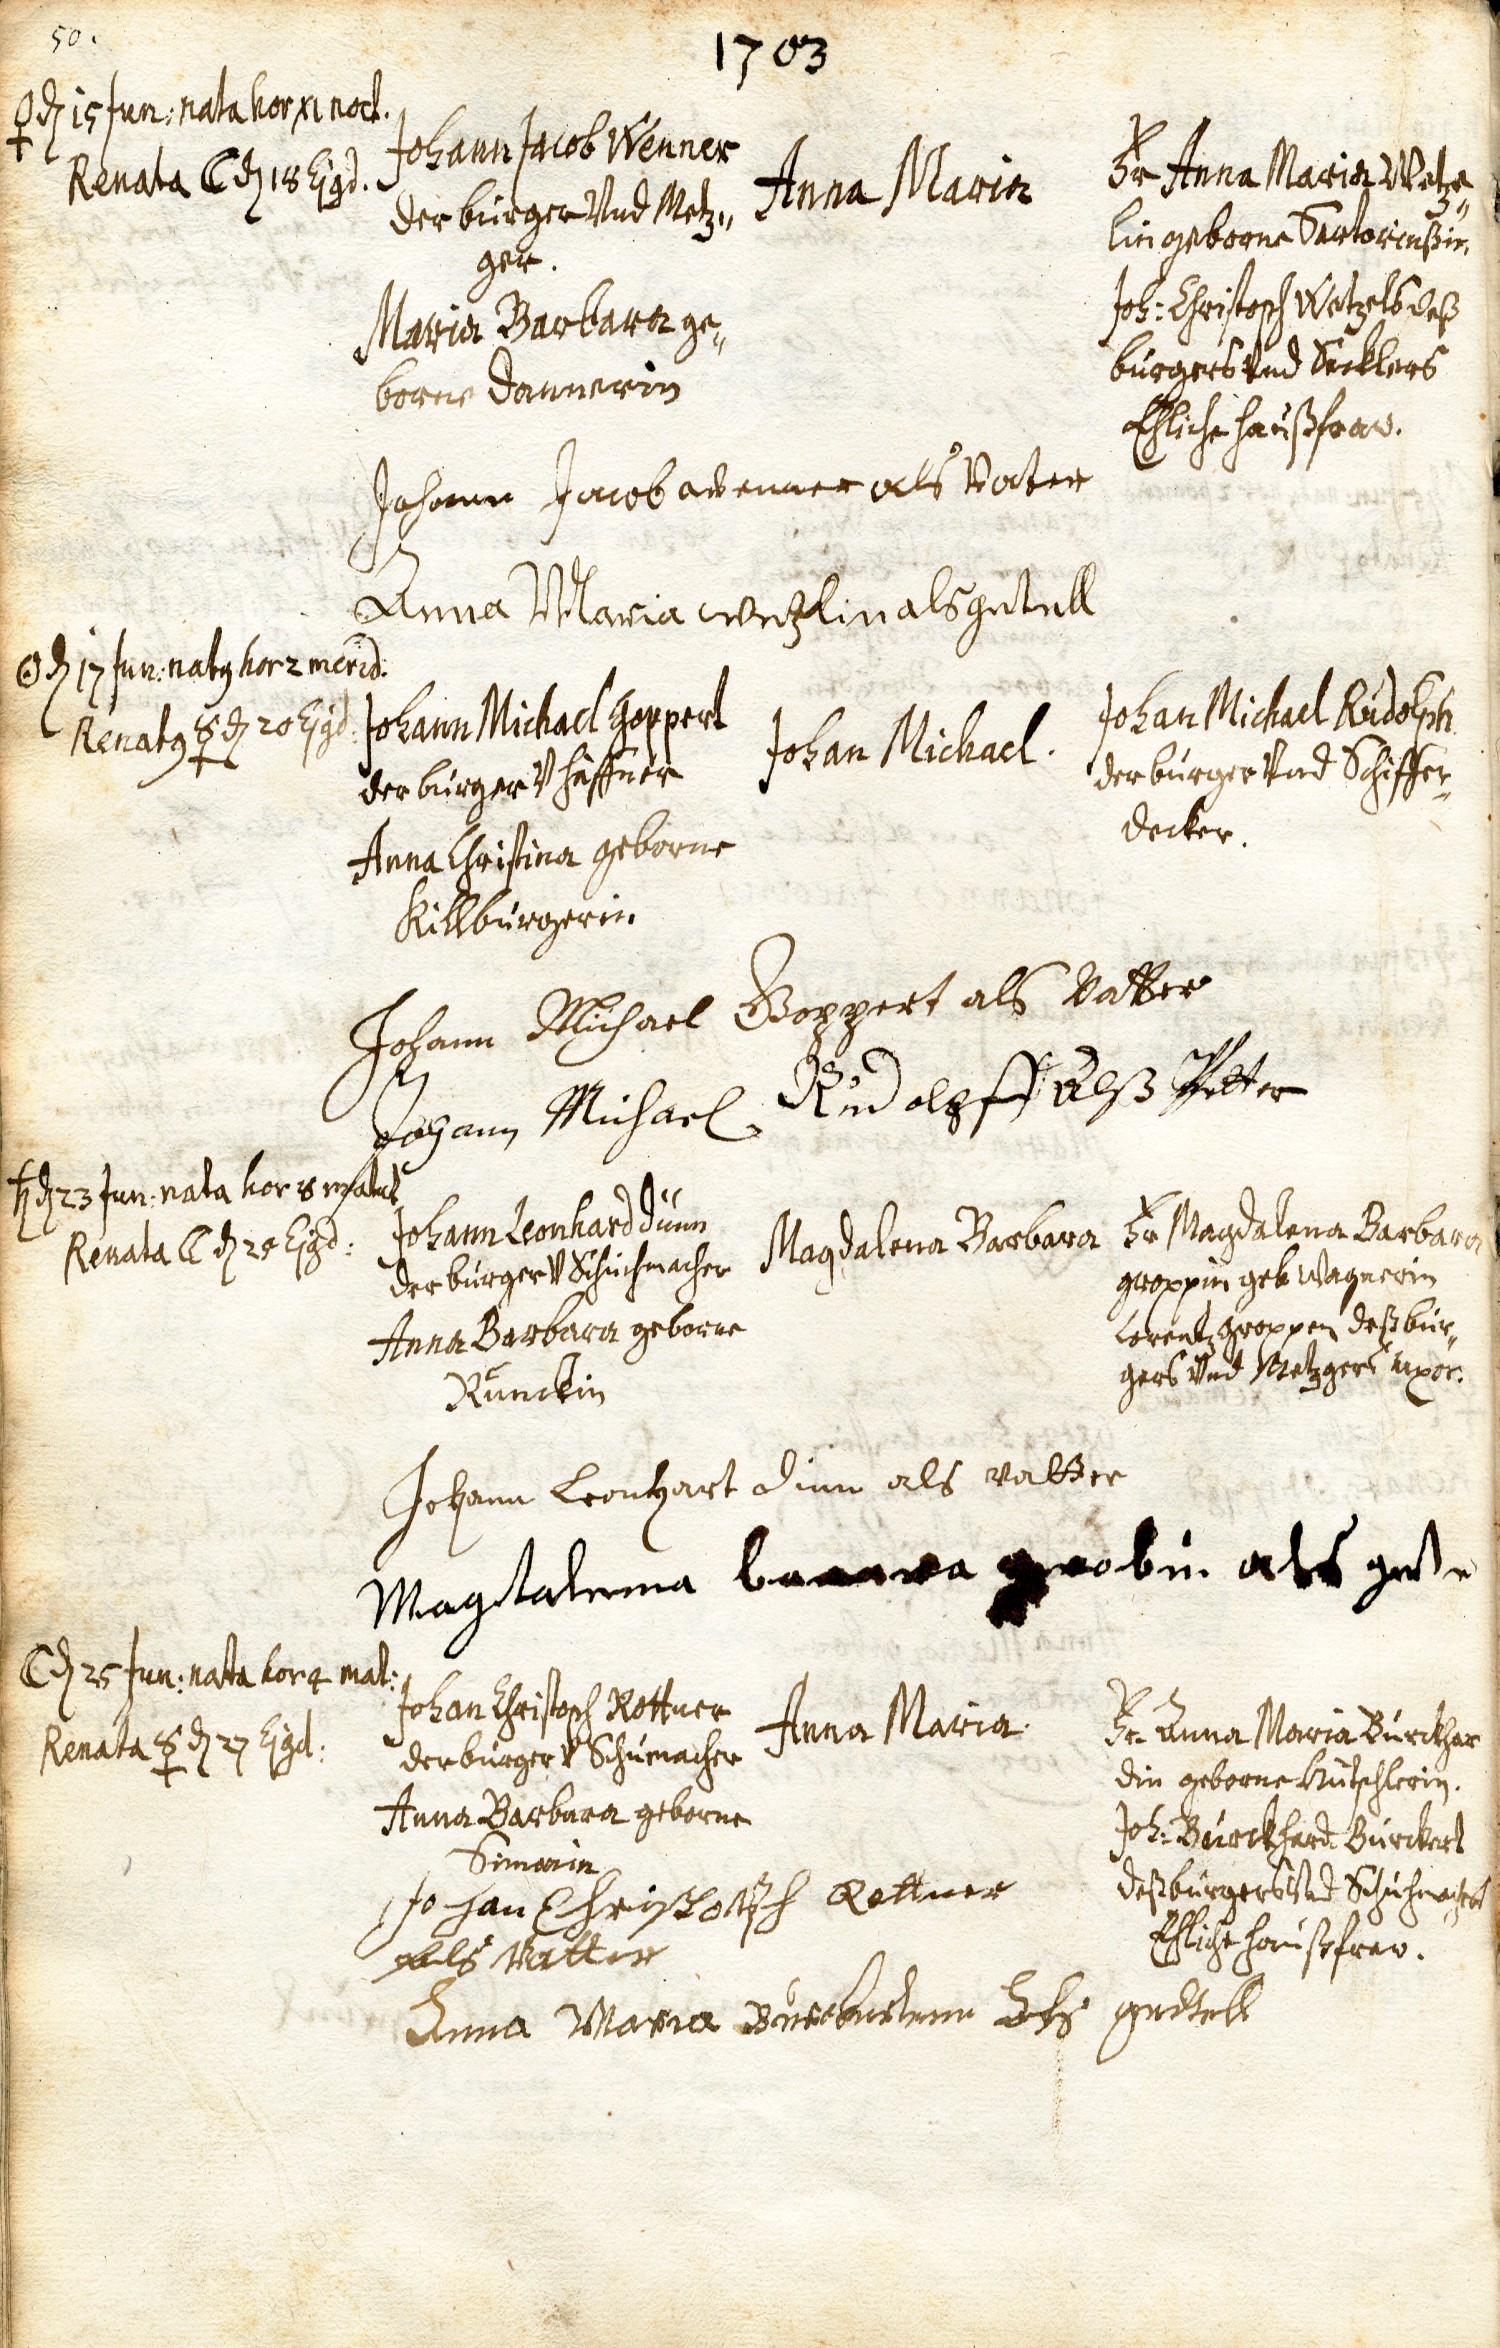 50.
1703
♀ d 15 Jun: nata hor XI noct.
Renata ☾ d 18 Ejgd.
Johann Jacob Wenner
der burger Vnd Metz„
ger.
Maria Barbara ge„
borne Dannerin
Anna Maria
Fr Anna Maria Wetze„
lin geborne Sartoriußin.
Joh: Christoph Wetzels deß
burgers Vnd Secklers
Ehliche haußfraw.
Johann Jacob wenner als Vater
Anna Maria wetzlin als gettell
☉ d 17 Jun: natq hor 2 merid:
Renatq ☿ d 20 Ejgd:
Johann Michael Goppert
der burger V haffner
Anna Christina geborne
Killburgerin.
Johan Michael.
Johan Michael Rudolph
der burger Vnd Schiffer„
decker.
Johann Michael Goppert als Vatter
Johann Michael Rudolpff Alß Petter
♄ d 23 Jun: nata hor 8 matut
Renata ☾ d 25 Ejgd:
Johann Leonhard Dünn
der burger V Schuhmacher
Anna Barbara geborne
Runckin
Magdalena Barbara
Fr Magdalena Barbara
Groppin geb Wagnerin
Lorentz Groppen deß bur„
gers Vnd Metzgers uxor.
Johann Leonhart dinn als vatter
Magdalena grobin als gete
☾ d 25 Jun: nata hor 4 mat:
Renata ☿ d 27 Ejgd:
Johan Christoph Rottner
der burger V Schumacher
Anna Barbara geborne
Simonin
Anna Maria.
Fr. Anna Maria Burckhar
din geborne Kutschlerin.
Joh: Burckhard Burckert
deß burgers Vnd Schuhmachers
Ehliche haußfraw.
Johan Christoph Rottner
als Vatter
Anna Maria als gedtell